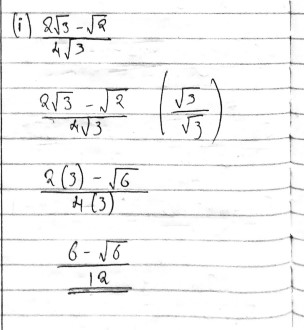 (i) 2√3 - √2 / 4√3
2√3 - √2 / 4√3 (√3 / √3)
2(3) - √6 / 4(3)
6 - √6 / 12